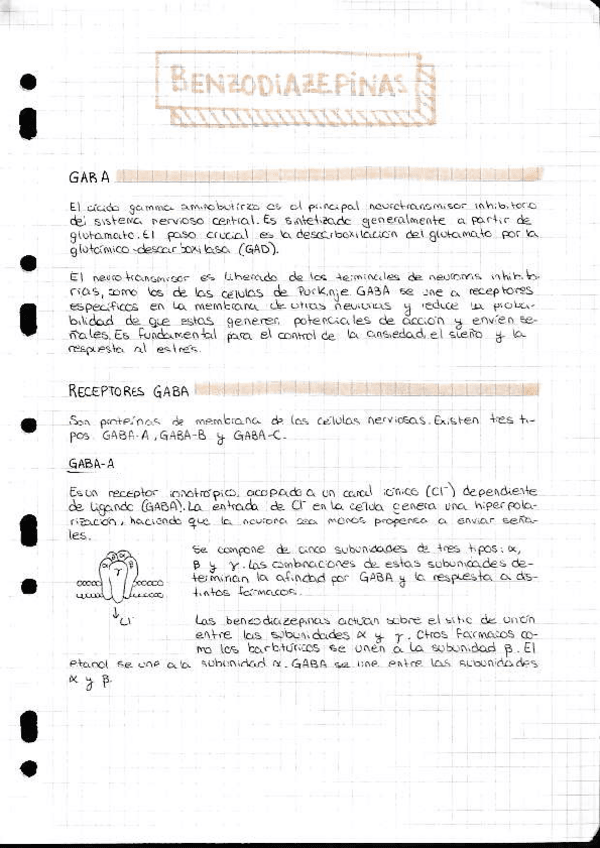 BENZODIAZEPINAS
GABA
El ácido gamma aminobutírico es el principal neurotransmisor inhibitorio
del sistema nervioso central. Es sintetizado generalmente a partir de
glutamato. El paso crucial es la descarboxilación del glutamato por la
glutámico-descarboxilasa (GAD).
El neurotransmisor es liberado de los terminales de neuronas inhibito-
rias, como los de las células de Purkinje. GABA se une a receptores
específicos en la membrana de otras neuronas y reduce la proba-
bilidad de que estas generen potenciales de acción y envíen se-
ñales. Es fundamental para el control de la ansiedad, el sueño y la
respuesta al estrés.
RECEPTORES GABA
Son proteínas de membrana de las células nerviosas. Existen tres ti-
pos: GABA-A, GABA-B y GABA-C.
GABA-A
Es un receptor ionotrópico, acoplado a un canal iónico (Cl⁻) dependiente
de ligando (GABA). La entrada de Cl⁻ en la célula genera una hiperpola-
rización, haciendo que la neurona sea menos propensa a enviar seña-
les.
Se compone de cinco subunidades de tres tipos: α,
β y γ. Las combinaciones de estas subunidades de-
terminan la afinidad por GABA y la respuesta a dis-
tintos fármacos.
γ
Cl⁻
Las benzodiazepinas actúan sobre el sitio de unión
entre las subunidades α y γ. Otros fármacos co-
mo los barbitúricos se unen a la subunidad β. El
etanol se une a la subunidad α. GABA se une entre las subunidades
α y β.